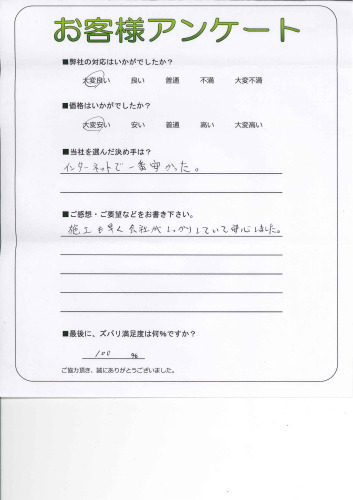 お客様アンケート
■弊社の対応はいかがでしたか?
大変良い 良い 普通 不満 大変不満
■価格はいかがでしたか?
大変安い 安い 普通 高い 大変高い
■当社を選んだ決め手は?
インターネットで一番安かった。
■ご感想・ご要望などをお書き下さい。
施工も早く会社がしっかりしていて安心しました。
■最後に、ズバリ満足度は何%ですか?
100 %
ご協力頂き、誠にありがとうございました。